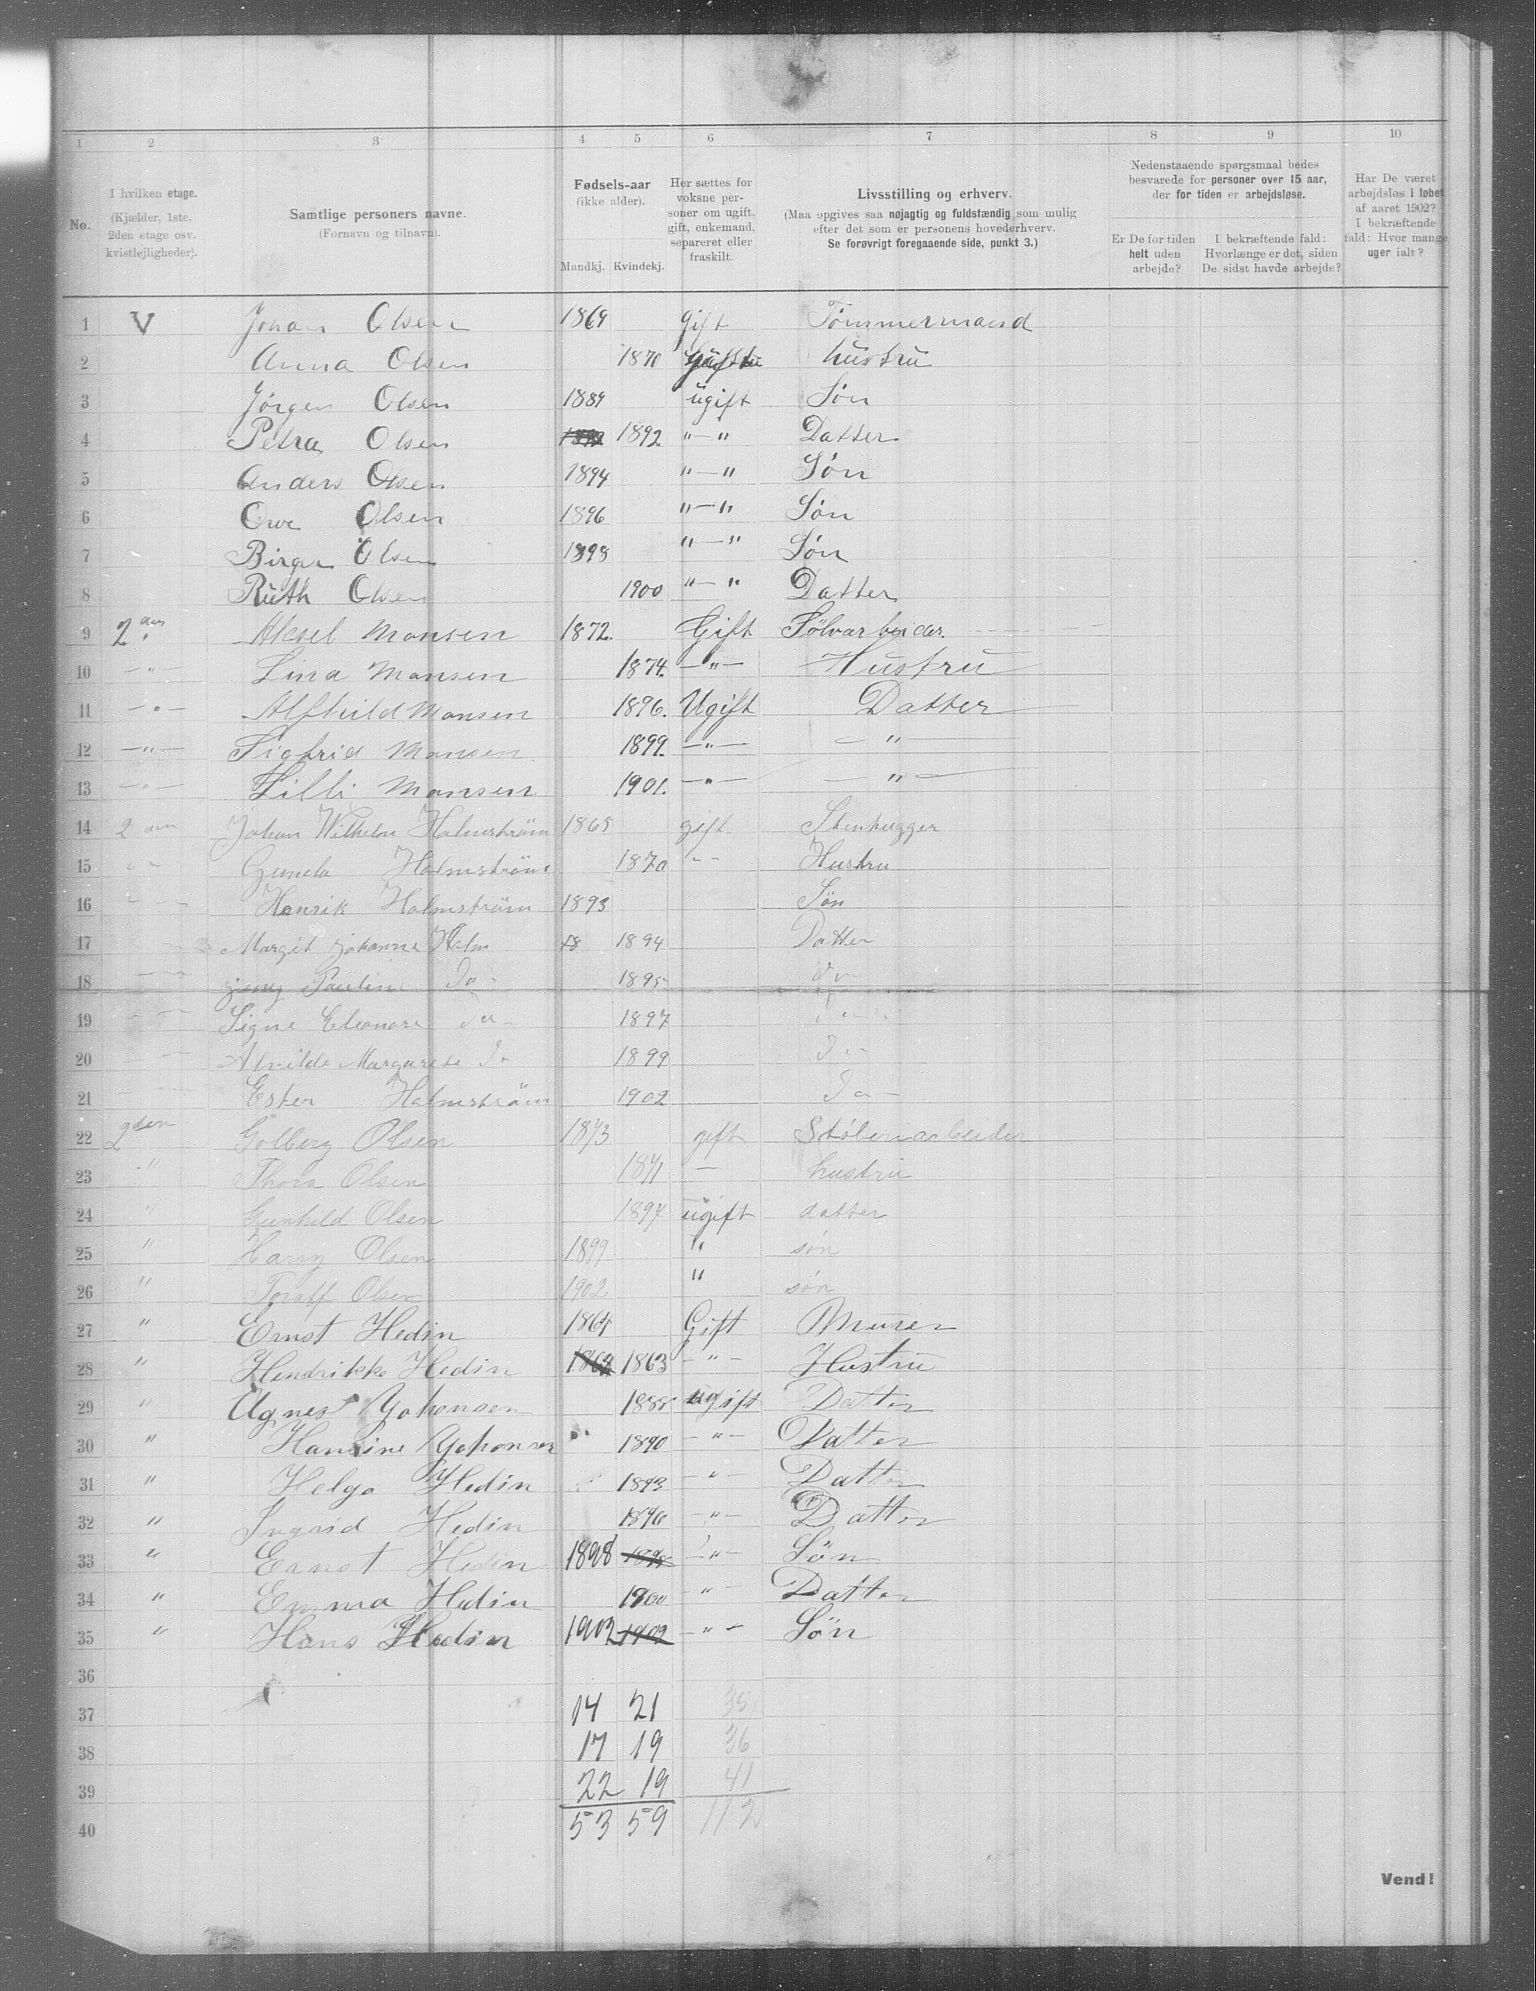 1 2 3 4 5 6 7 8 9 10
No.
I hvilken etage.
(Kjælder, 1ste,
2den etage osv.
kvistlejligheder).
Samtlige personers navne.
(Fornavn og tilnavn).
Fødsels-aar
(ikke alder).
Mandkj. Kvindekj.
Her sættes for
voksne per-
soner om ugift,
gift, enkemand,
separeret eller
fraskilt.
Livsstilling og erhverv.
(Maa opgives saa nøjagtig og fuldstændig som mulig
efter det som er personens hovederhverv.
Se forøvrigt foregaaende side, punkt 3.)
Nedenstaaende spørgsmaal bedes
besvarede for personer over 15 aar,
der for tiden er arbejdsløse.
Er De for tiden
helt uden
arbejde?
I bekræftende fald:
Hvorlænge er det, siden
De sidst havde arbejde?
Har De været
arbejdsløs i løbet
af aaret 1902?
I bekræftende
fald: Hvor mange
uger ialt?
1 V Johan Olsen 1869 gift Tömmermand
2 Anna Olsen 1870 hustru
3 Jørgen Olsen 1889 ugift Søn
4 Petra Olsen 1892 "—" Datter
5 Anders Olsen 1894 "—" Søn
6 Ove Olsen 1896 "—" Søn
7 Birger Olsen 1898 "—" Søn
8 Ruth Olsen 1900 "—" Datter
9 2den Aksel Monsen 1872. Gift Sölvarbeider.
10 —"— Lina Monsen 1874. —"— Hustru
11 —"— Alfhild Monsen 1896. Ugift Datter
12 —"— Sigfrid Monsen 1899. —"— —"—
13 —"— Lilli Monsen 1901. —"— —"—
14 2den Johan Wilhelm Halmström 1865 gift Stenhugger
15 Gunda Halmström 1870 "-" Hustru
16 Henrik Halmström 1893 Søn
17 Margit Johanne Halm 18 1894 Datter
18 Jenny Pauline Do- 1895 Do
19 Signe Eleonore Do- 1897 Do
20 Alvilde Margarete Do 1899 Do
21 Ester Halmström 1902 Do-
22 2den Golberg Olsen 1873 gift Stöberiarbeider
23 " Thora Olsen 1871 — hustru
24 " Gunhild Olsen 1897 ugift datter
25 " Harry Olsen 1899 " søn
26 " Toralf Olsen 1902 " søn
27 " Ernst Hedin 1864 Gift Murer
28 " Hendrikke Hedin 1863 -"- Hustru
29 " Agnes Yohansen 1888 ugift Datter
30 " Hansine Yohansen 1890 -"- Datter
31 " Helga Hedin 1893 -"- Datter
32 " Ingrid Hedin 1896 -"- Datter
33 " Ernst Hedin 1898 -"- Søn
34 " Emma Hedin 1900 -"- Datter
35 " Hans Hedin 1902 1902 -"- Søn
36
37 14 21 35
38 17 19 36
39 22 19 41
40 53 59 112
Vend!